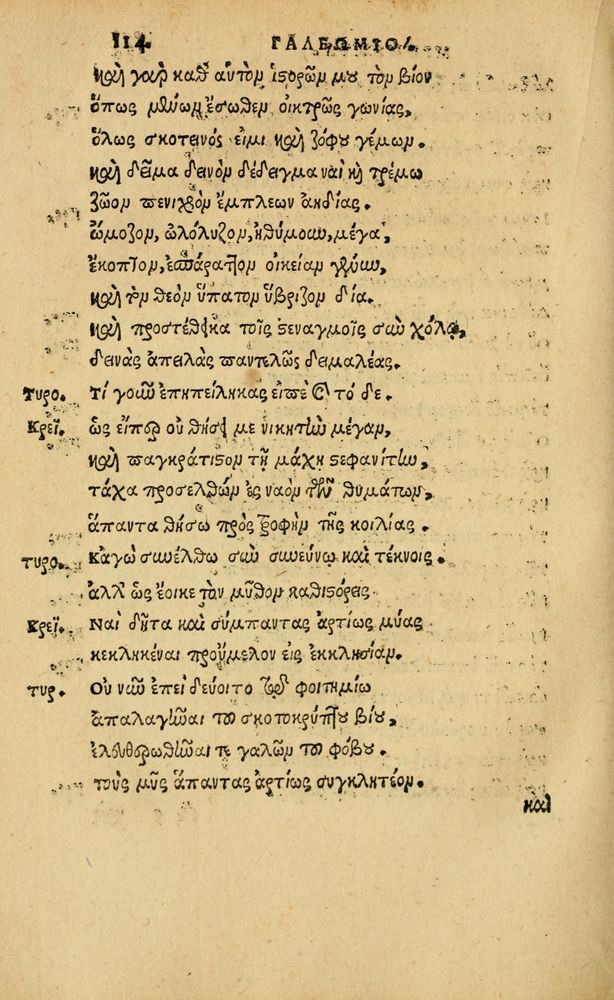 114 ΓΑΛΕΩΜΙΟ/.
καὶ γαρ καθ αὑτὸν ἱστορῶν μου τὸν βίον
ὅπως μένων ἔσωθεν οἰκτρῶς γωνίας,
ὅλως σκοτεινός εἰμι καὶ ζόφου γέμων.
καὶ δεῖμα δεινὸν δέδειγμαι ναὶ κὴ τρέμω
ζῶον πενιχρὸν ἔμπλεων ἀκδίας.
ᾤμοζον, ὠλόλυζον, ἠθύμουν, μέγα,
ἔκοπτον, ἐσπάραττον οἰκείαν γένυν,
καὶ τὸν θεὸν ὕπατον ὕβριζον δία.
καὶ προστέθηκα τοῖς στεναγμοῖς σὺν χόλῳ,
δεινὰς ἀπειλὰς παντελῶς δειμαλέας.
Τυρο. Τί γοῦν ἐπηπείληκας εἰπὲ σὺ τό δε.
Κρεΐ. ὡς εἴπερ οὐ θήσῃ με νικητὴν μέγαν,
καὶ παγκράτιστον τῇ μάχῃ στεφανίτην,
τάχα προσελθὼν ἐς ναὸν τῶν θυμάτων,
ἅπαντα θήσω πρὸς τροφὴν τῆς κοιλίας.
τυρο. Κἀγὼ συνέλθω σὺν συνεύνῳ καὶ τέκνοις.
ἀλλ ὡς ἔοικε τὸν μῦθον καθιστόρεις
Κρεΐ. Ναὶ δῆτα καὶ σύμπαντας ἀρτίως μύας
κεκληκέναι προὔμελον εἰς ἐκκλησίαν.
τυρ. Οὐ νῶν ἐπεὶ δεύοιτο τοῦ φοιτημίω
ἀπαλαγῆναι τοῦ σκοτοκρύπτου βίου,
ἐλευθερωθῆναι τε γαλῶν τοῦ φόβου.
τοὺς μῦς ἅπαντας ἀρτίως συγκλητέον.
καὶ